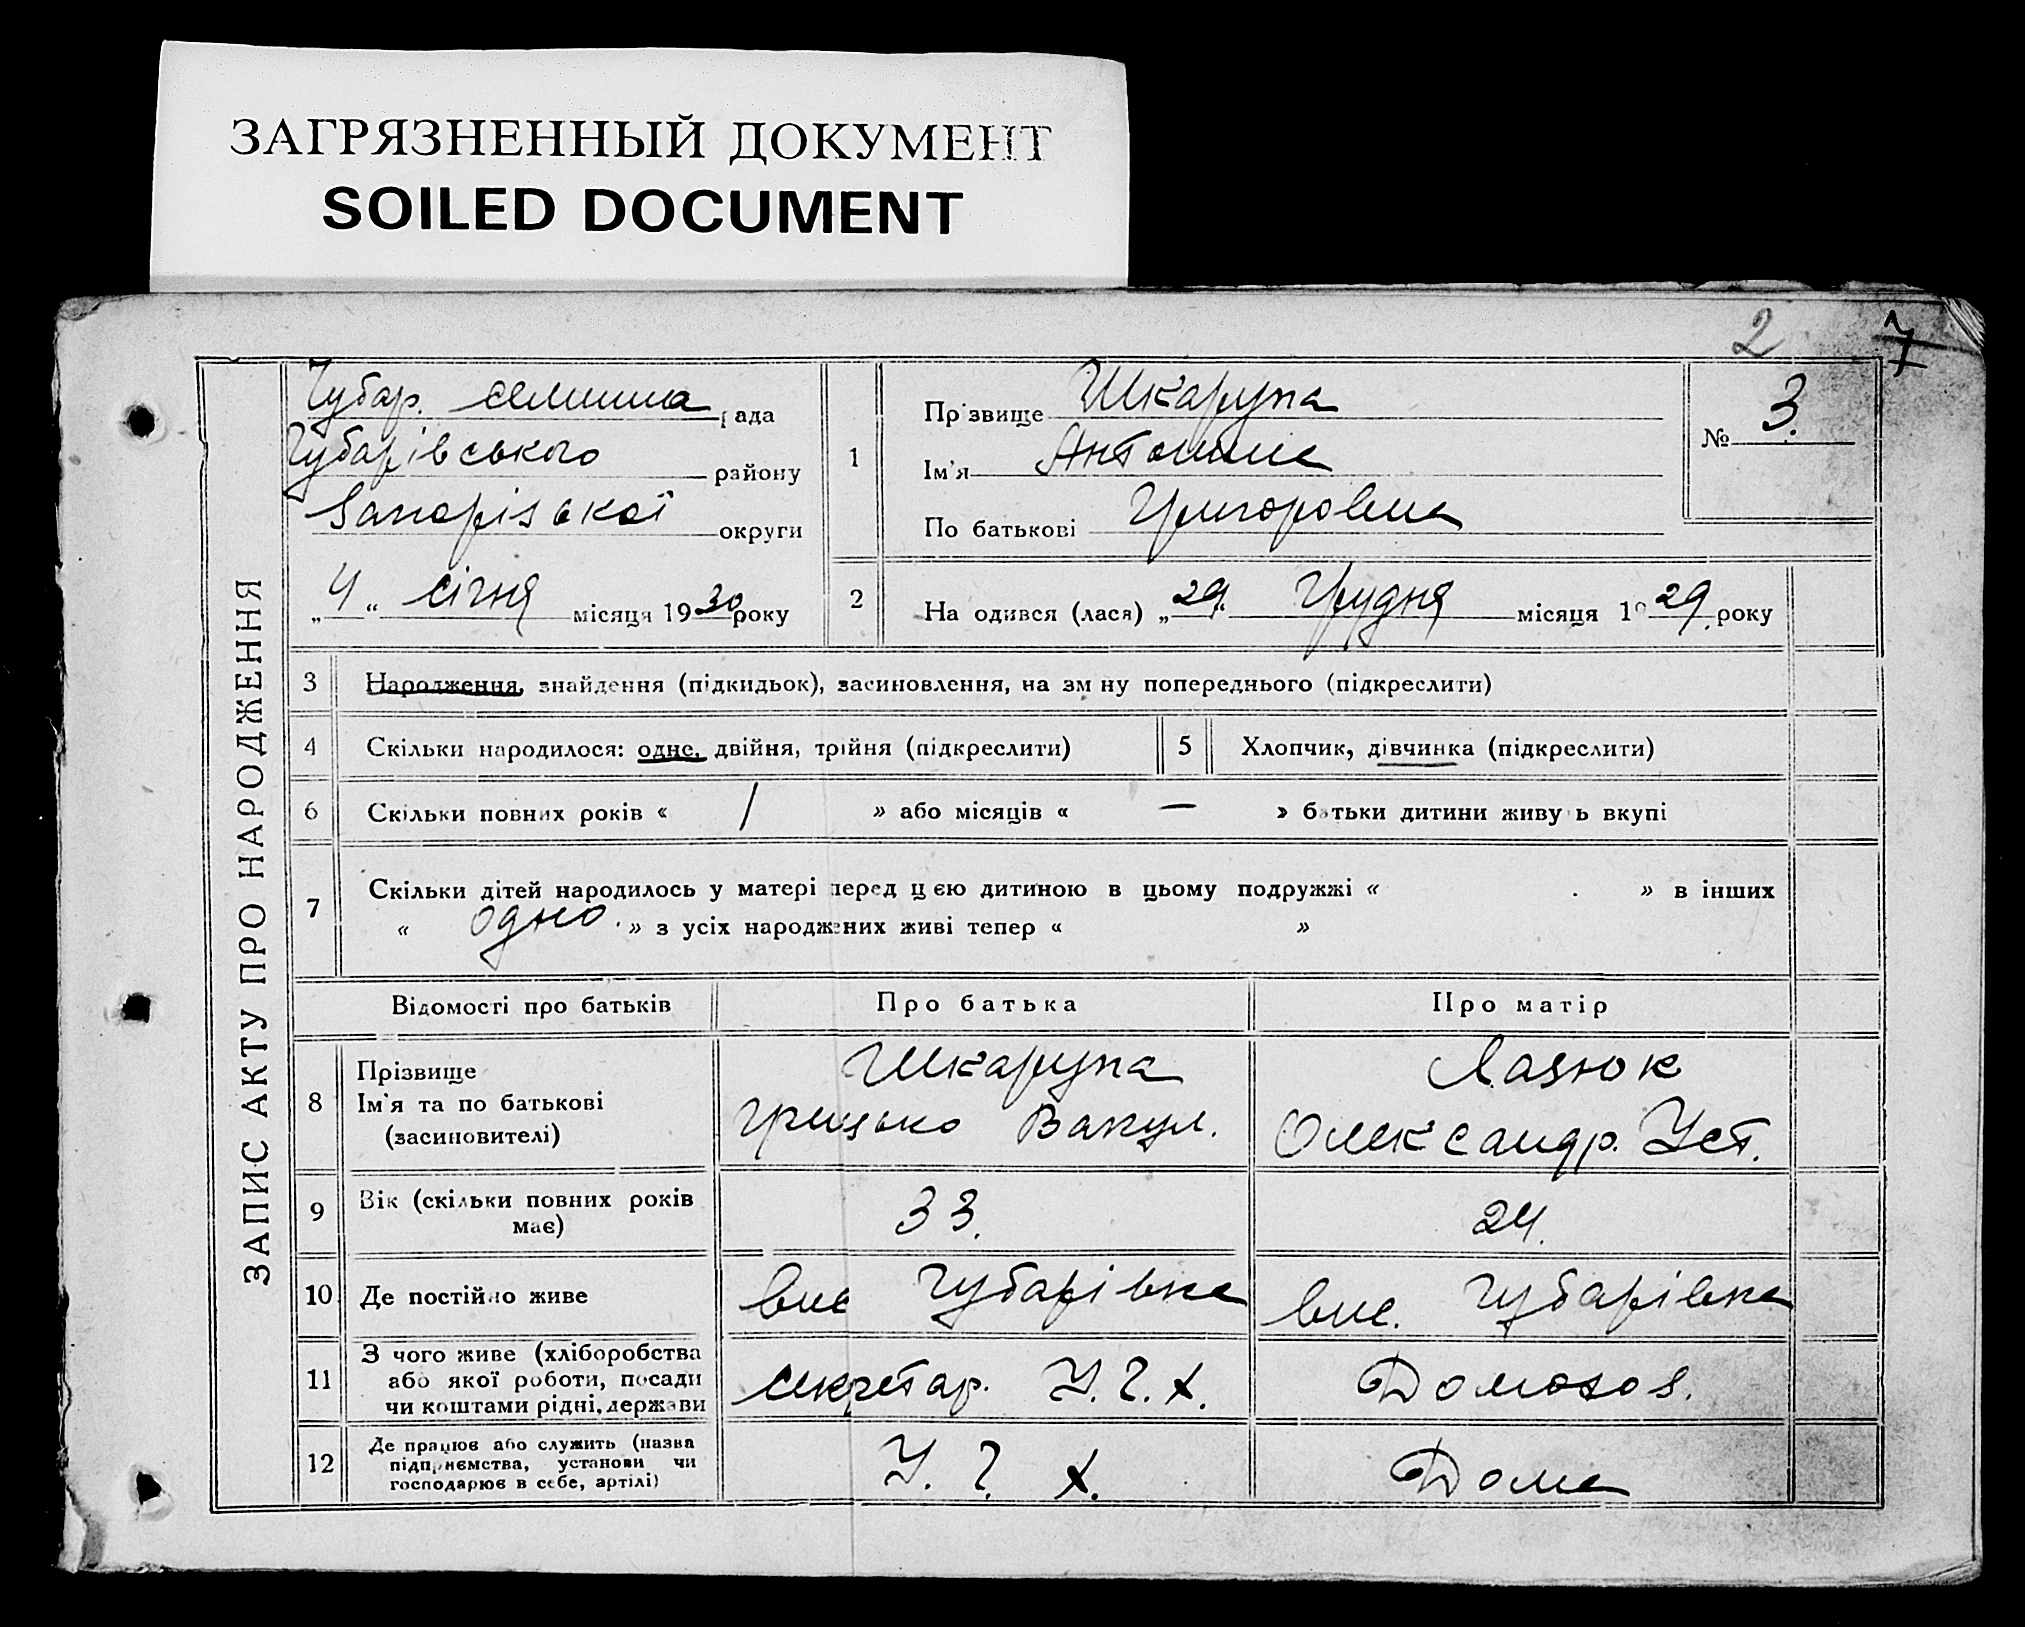 ЗАГРЯЗНЕННЫЙ ДОКУМЕНТ
SOILED DOCUMENT
2 7
ЗАПИС АКТУ ПРО НАРОДЖЕННЯ
Чубар. селищна рада
Чубарівського району
Запорізької округи
„ 4 “ січня місяця 1930 року
1
Прізвище Шкарупа
Ім'я Антонина
По батькові Григоровна
№ 3.
2 На одився (лася) „ 29 “ Грудня місяця 1929. року
3 Народження, знайдення (підкидьок), засиновлення, на зм ну попереднього (підкреслити)
4 Скільки народилося: одне, двійня, трійня (підкреслити) 5 Хлопчик, дівчинка (підкреслити)
6 Скільки повних років « / » або місяців « — » батьки дитини живу ь вкупі
7 Скільки дітей народилось у матері перед цією дитиною в цьому подружжі « » в інших
« одно. » з усіх народжених живі тепер « »
Відомості про батьків Про батька Про матір
8 Прізвище
Ім'я та по батькові
(засиновителі)
Шкарупа
Грицько Вакул.
Лазюк
Олександр. Уст.
9 Вік (скільки повних років
має)
33. 24.
10 Де постійно живе вис Чубарівка вис. Чубарівка
11 З чого живе (хліборобства
або якої роботи, посади
чи коштами рідні, держави
секретар. У. Г. Х. Домогос.
12 Де працює або служить (назва
підприємства, установи чи
господарює в себе, артілі)
У. Г. Х. Дома